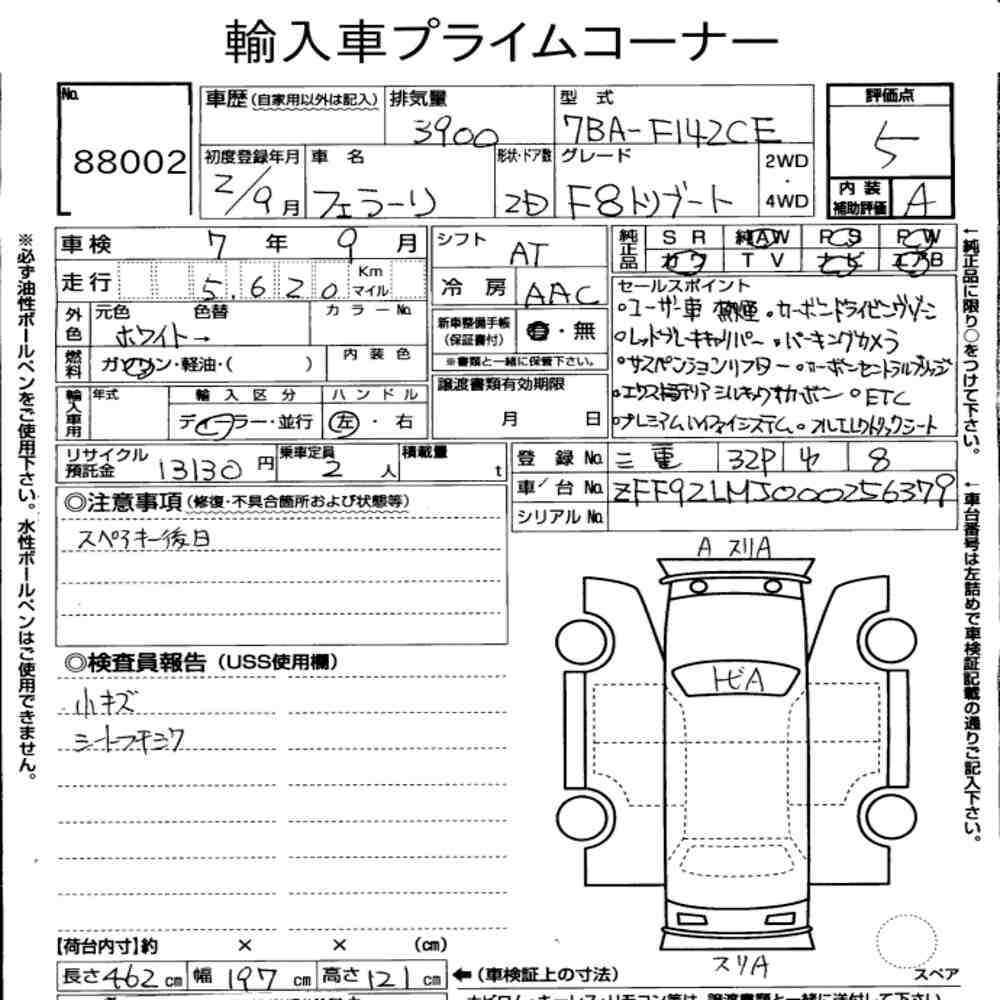 輸入車プライムコーナー
No. 88002
車歴 (自家用以外は記入)
排気量 3900
型式 7BA-F142CE
評価点 5
初度登録年月 2/9月
車名 フェラーリ
形状・ドア数 2D
グレード F8トリブート
2WD・4WD
内装補助評価 A
車検 7年9月
シフト AT
純正品 SR 純AW PS PW
カワ TV ナビ エアB
走行 5,620 Km マイル
冷房 AAC
セールスポイント
○ユーザー車 禁煙 ○カーボンドライビングゾーン
○レッドブレーキキャリパー ○パーキングカメラ
○サスペンションリフター ○カーボンセントラルブリッジ
○ETC
○プレミアムハイファイシステム ○フルエレクトリックシート
外色 元色 ホワイト→ 色替
カラーNo.
新車整備手帳(保証書付) 有・無
※書類と一緒に保管下さい。
燃料 ガソリン・軽油・( )
内装色
譲渡書類有効期限
月 日
輸入車用 年式
輸入区分 ディーラー・並行
ハンドル 左・右
リサイクル預託金 13130円
乗車定員 2人
積載量 t
登録No. 三重 32P 4 8
車/台No. ZFF92LMJ000256379
シリアルNo.
◎注意事項 (修復・不具合箇所および状態等)
スペアキー後日
◎検査員報告 (USS使用欄)
小キズ
シートフチミワ
A スリA
トビA
スリA
スペア
【荷台内寸】約 × × (cm)
長さ462cm 幅197cm 高さ121cm
←(車検証上の寸法)
※必ず油性ボールペンをご使用下さい。水性ボールペンはご使用できません。
←純正品に限り○をつけて下さい。
←車台番号は左詰めで車検証記載の通りご記入下さい。